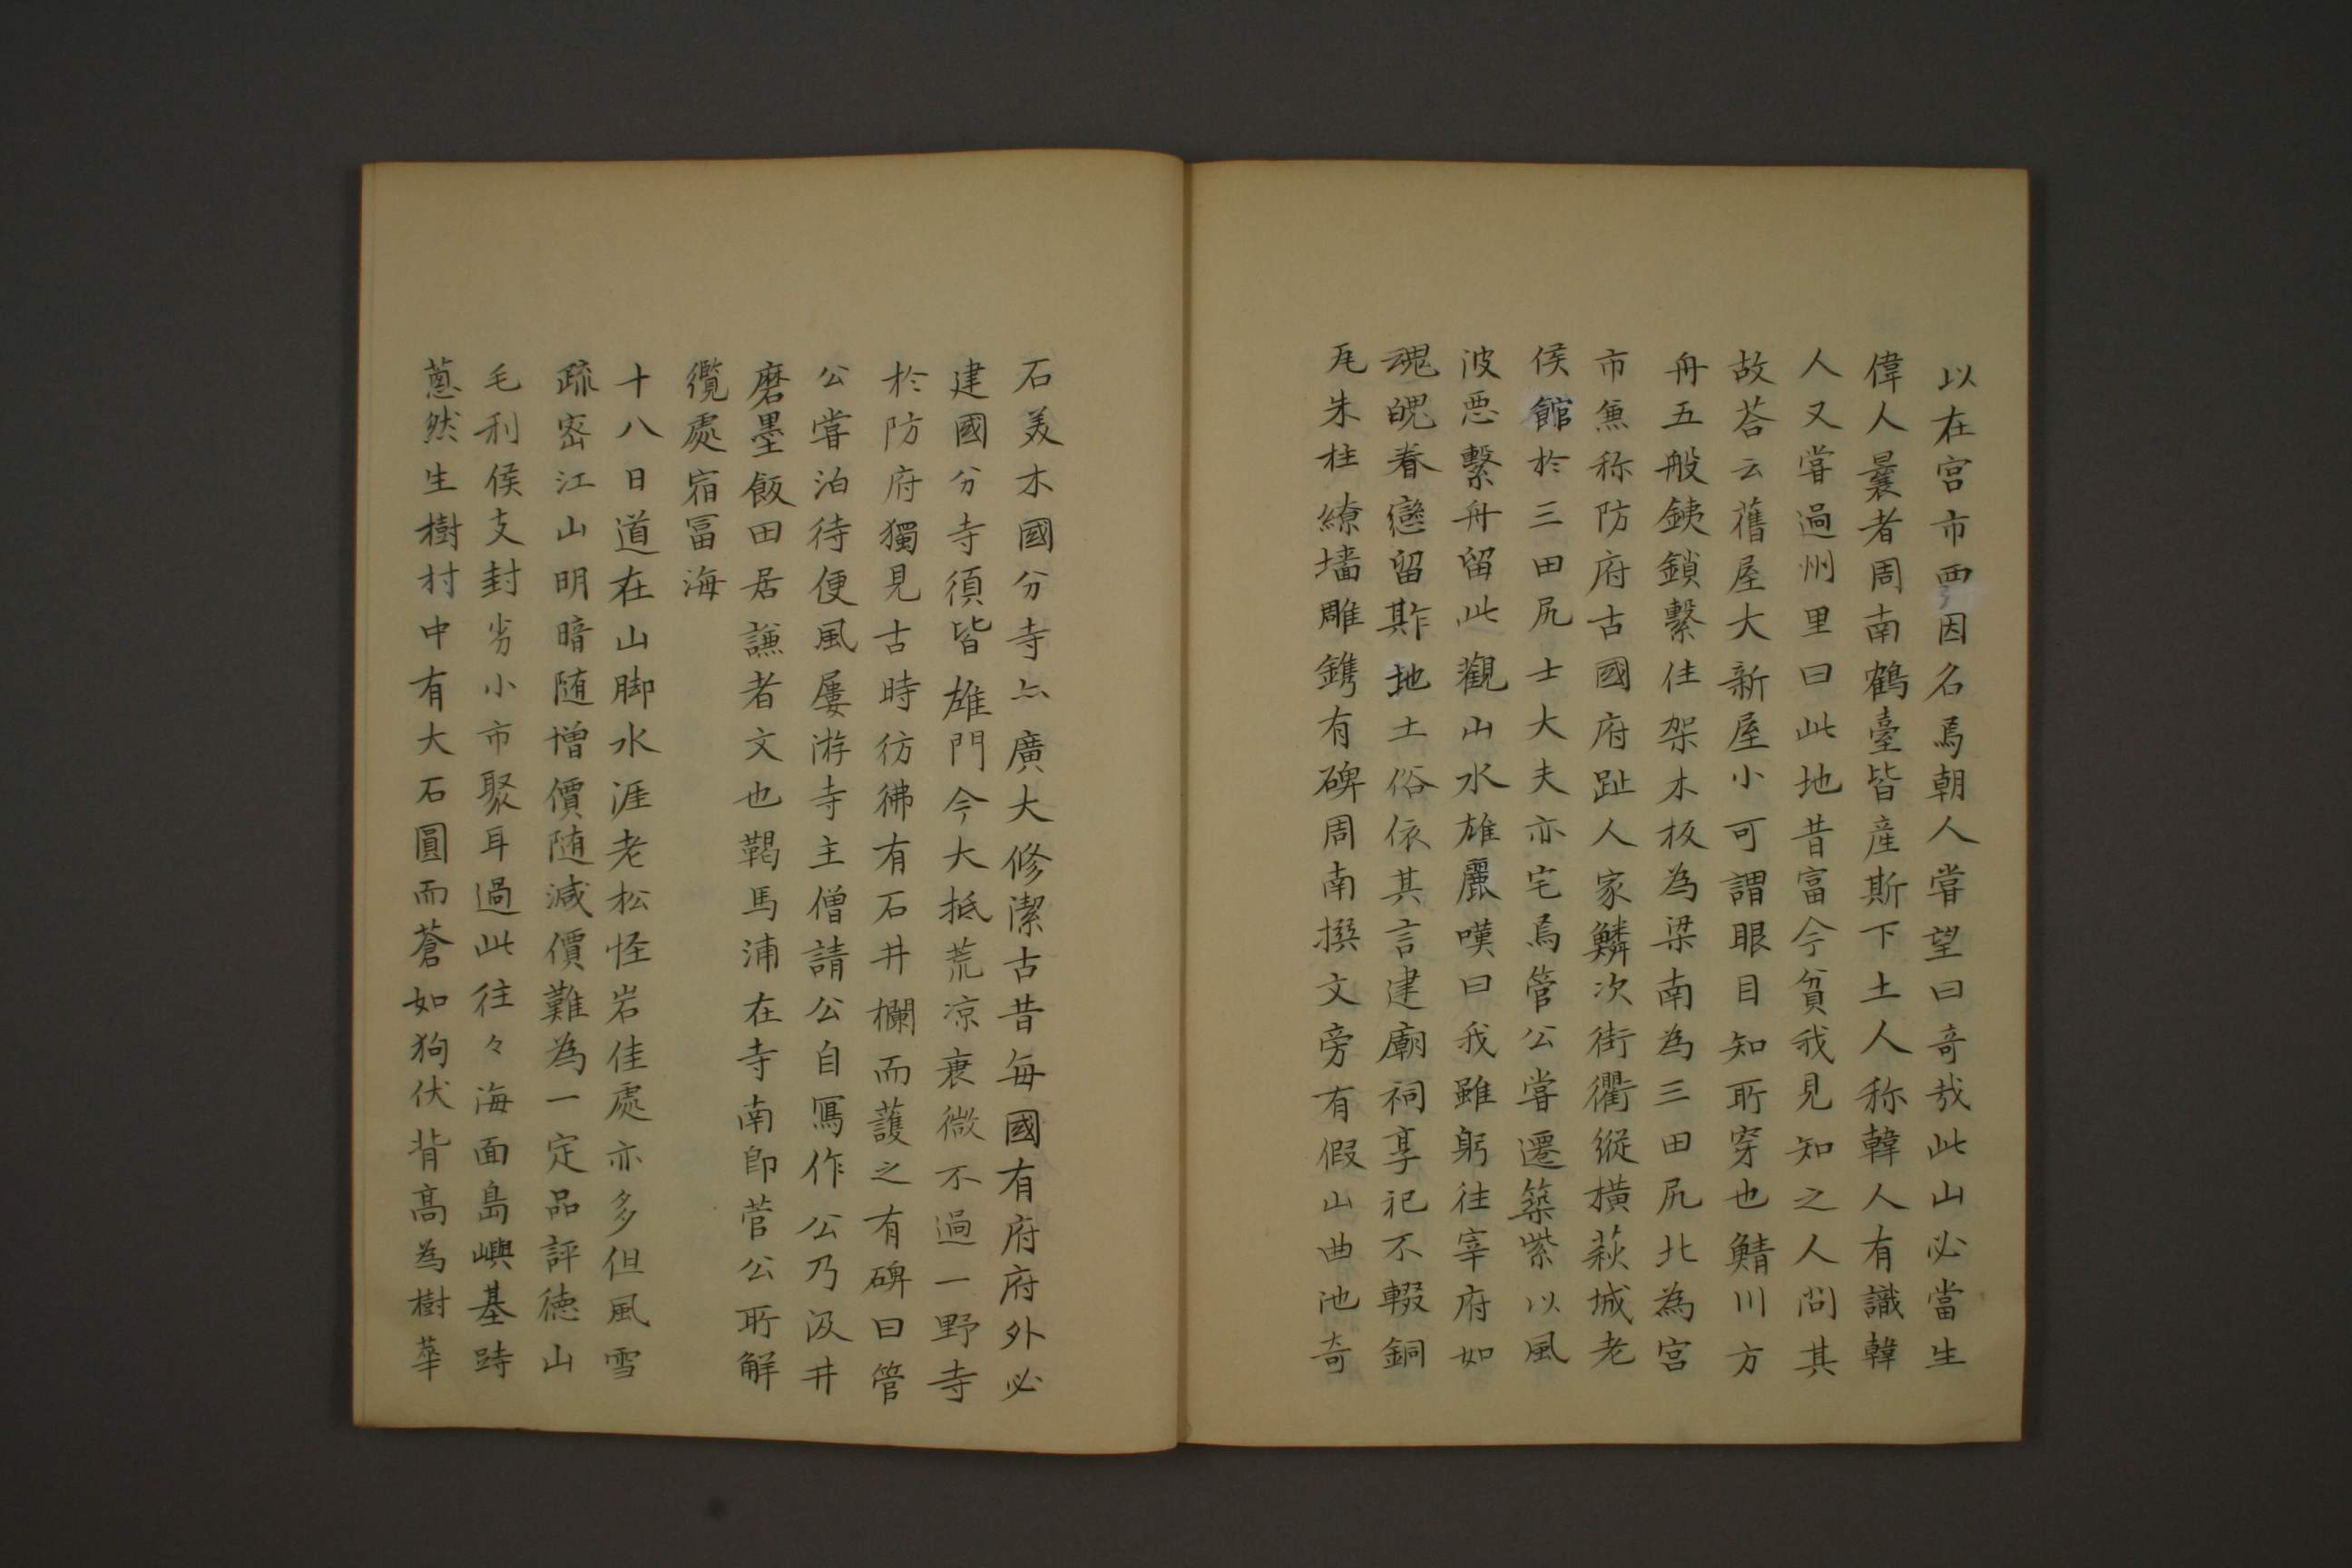 以在宫市西因名焉朝人嘗望曰奇哉此山必當生
偉人曩者周南鶴臺皆産斯下土人称韓人有識韓
人又嘗過州里曰此地昔富今貧我見知之人問其
故荅云舊屋大新屋小可謂眼目知所穿也鯖川方
舟五般銕鎖繫住架木板為梁南為三田尻北為宮
市兼称防府古國府趾人家鱗次街衢縱横萩城老
侯館於三田尻士大夫亦宅焉管公嘗遷築紫以風
波悪繫舟留此觀山水雄麗嘆曰我雖躬往宰府如
魂魄眷戀留斯地土俗依其言建廟祠享祀不輟銅
瓦朱柱繚墻雕鐫有碑周南撰文旁有假山曲池奇
石美木國分寺亦廣大修潔古昔每國有府府外必
建國分寺須皆雄門今大抵荒凉衰微不過一野寺
於防府獨見古時彷彿有石井欄而護之有碑曰管
公嘗泊待便風屢游寺主僧請公自寫作公乃汲井
磨墨飯田居謙者文也鞨馬浦在寺南即菅公所解
纜處宿冨海
十八日道在山脚水涯老松怪岩佳處亦多但風雪
疏密江山明暗随増價随減價難為一定品評徳山
毛利侯支封劣小市聚耳過此往々海面島嶼基跱
蔥然生樹村中有大石圓而蒼如狗伏背高為樹葦